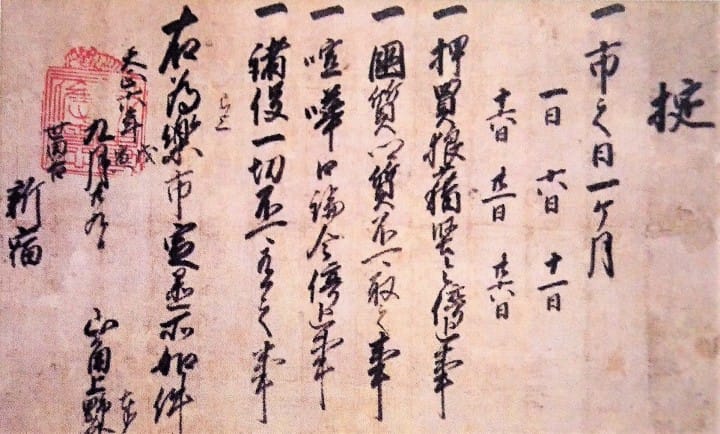 掟
一 市之日一ヶ月
一日 六日 十一日
十六日 廿一日 廿六日
一 押買狼藉堅令停止事
一 國質郷質不可取之事
一 喧嘩口論令停止事
一 諸役一切不可有之事
已上
右為樂市定置所如件
天正六年戊寅
九月廿九日
山角上野
世田谷
新宿